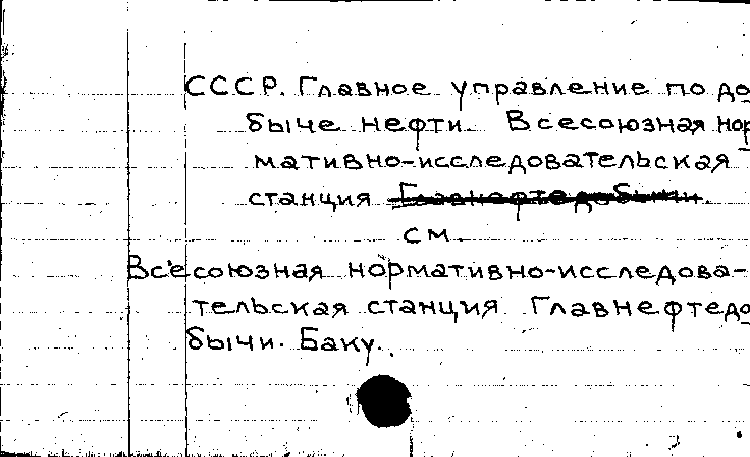 СССР. Главное управление по до
быче нефти. Всесоюзная нор
мативно-исследовательская
станция Главнефтедобычи.
см.
Всесоюзная нормативно-исследова-
тельская станция Главнефтедо
бычи. Баку.